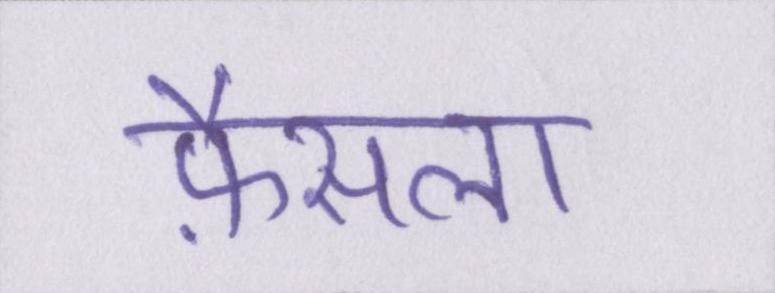 फ़ैसला